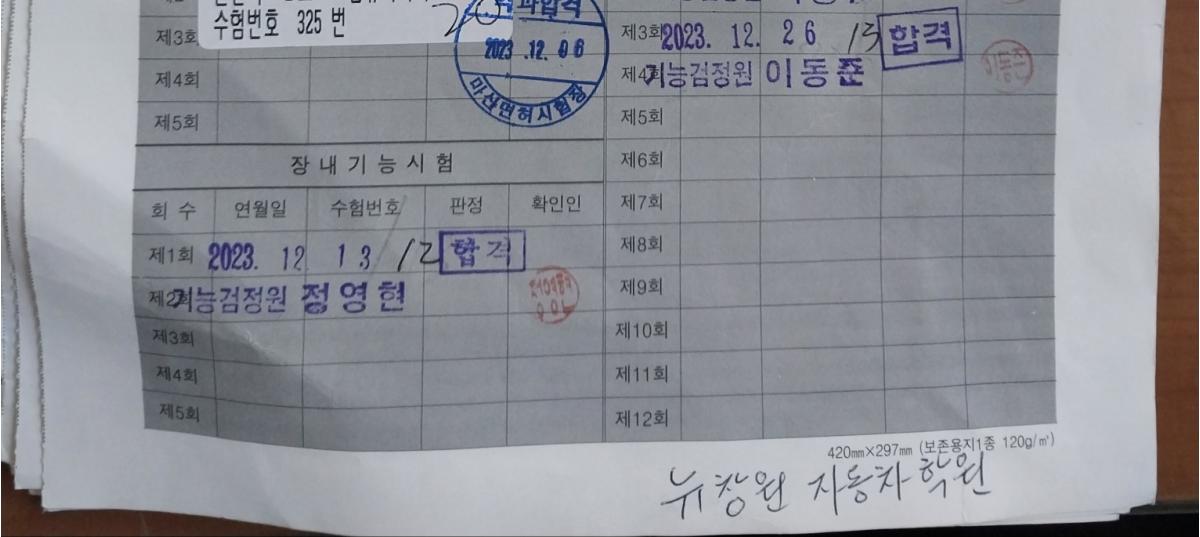 수험번호 325 번
과합격
2023 .12. 06
마산면허시험장
제3회
제4회
제5회
장 내 기 능 시 험
회 수 연월일 수험번호 판정 확인인
제1회 2023. 12 13 12 합격
제2회 기능검정원 정영현
제3회
제4회
제5회
제3회 2023. 12. 26 13 합격
제4회 기능검정원 이동준
이동준
제5회
제6회
제7회
제8회
제9회
제10회
제11회
제12회
420㎜×297㎜ (보존용지1종 120g/㎡)
뉴창원 자동차학원